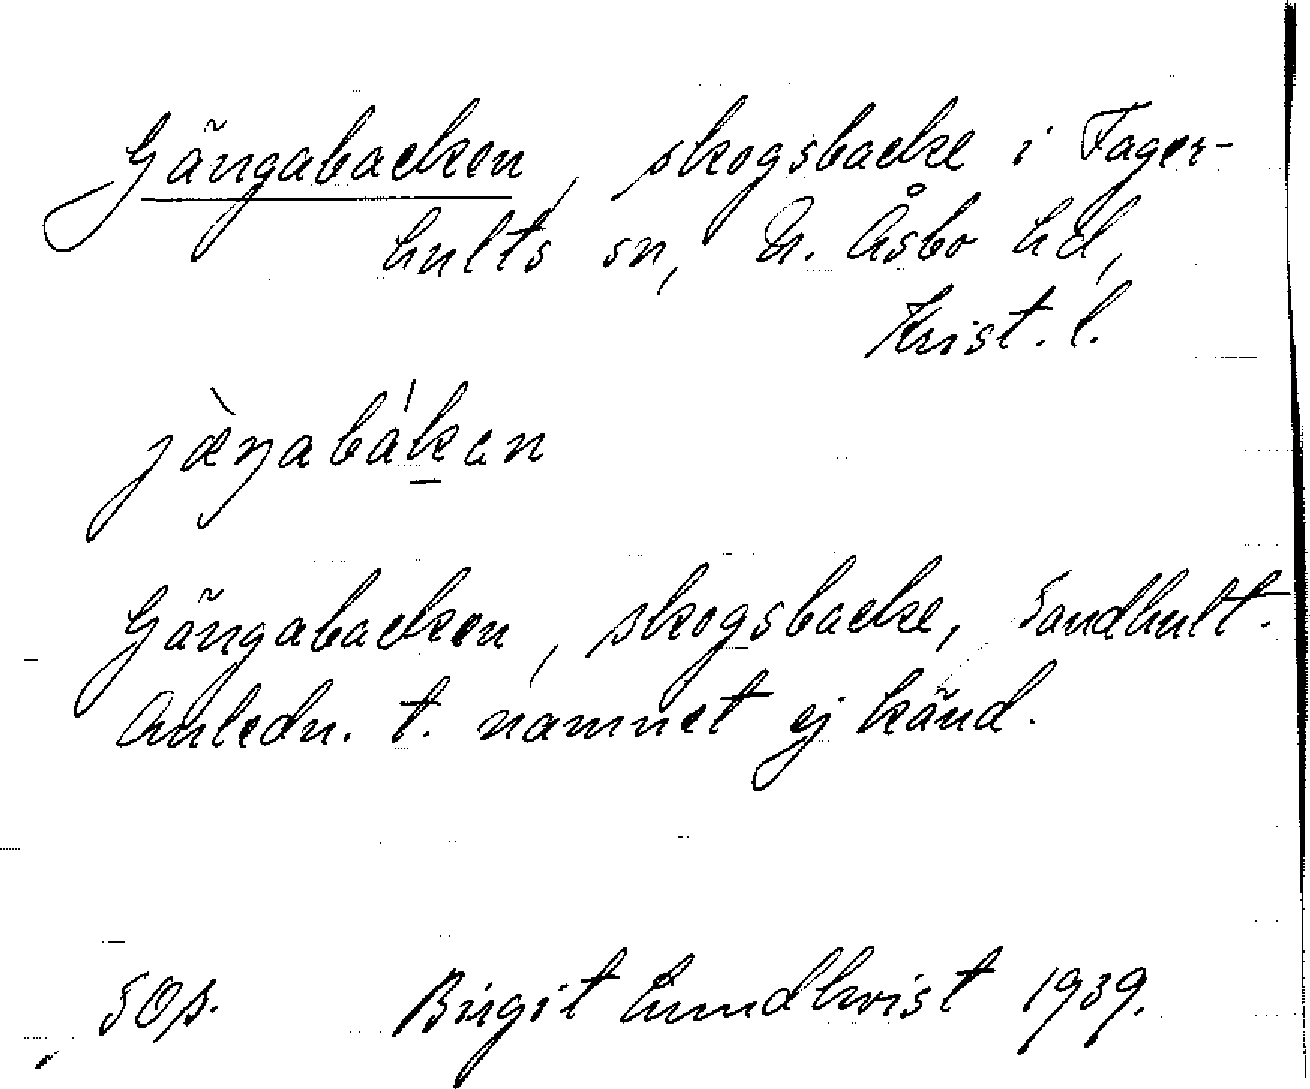 Gängabacken, skogsbacke i Fager-
hults sn, N. Åsbo hd,
Krist. l.
jæ̀ŋabák̲ən
Gängabacken, skogsbacke, Sandhult.
Anledn. t. namnet ej känd.
SOp. Birgit Lundkvist 1939.